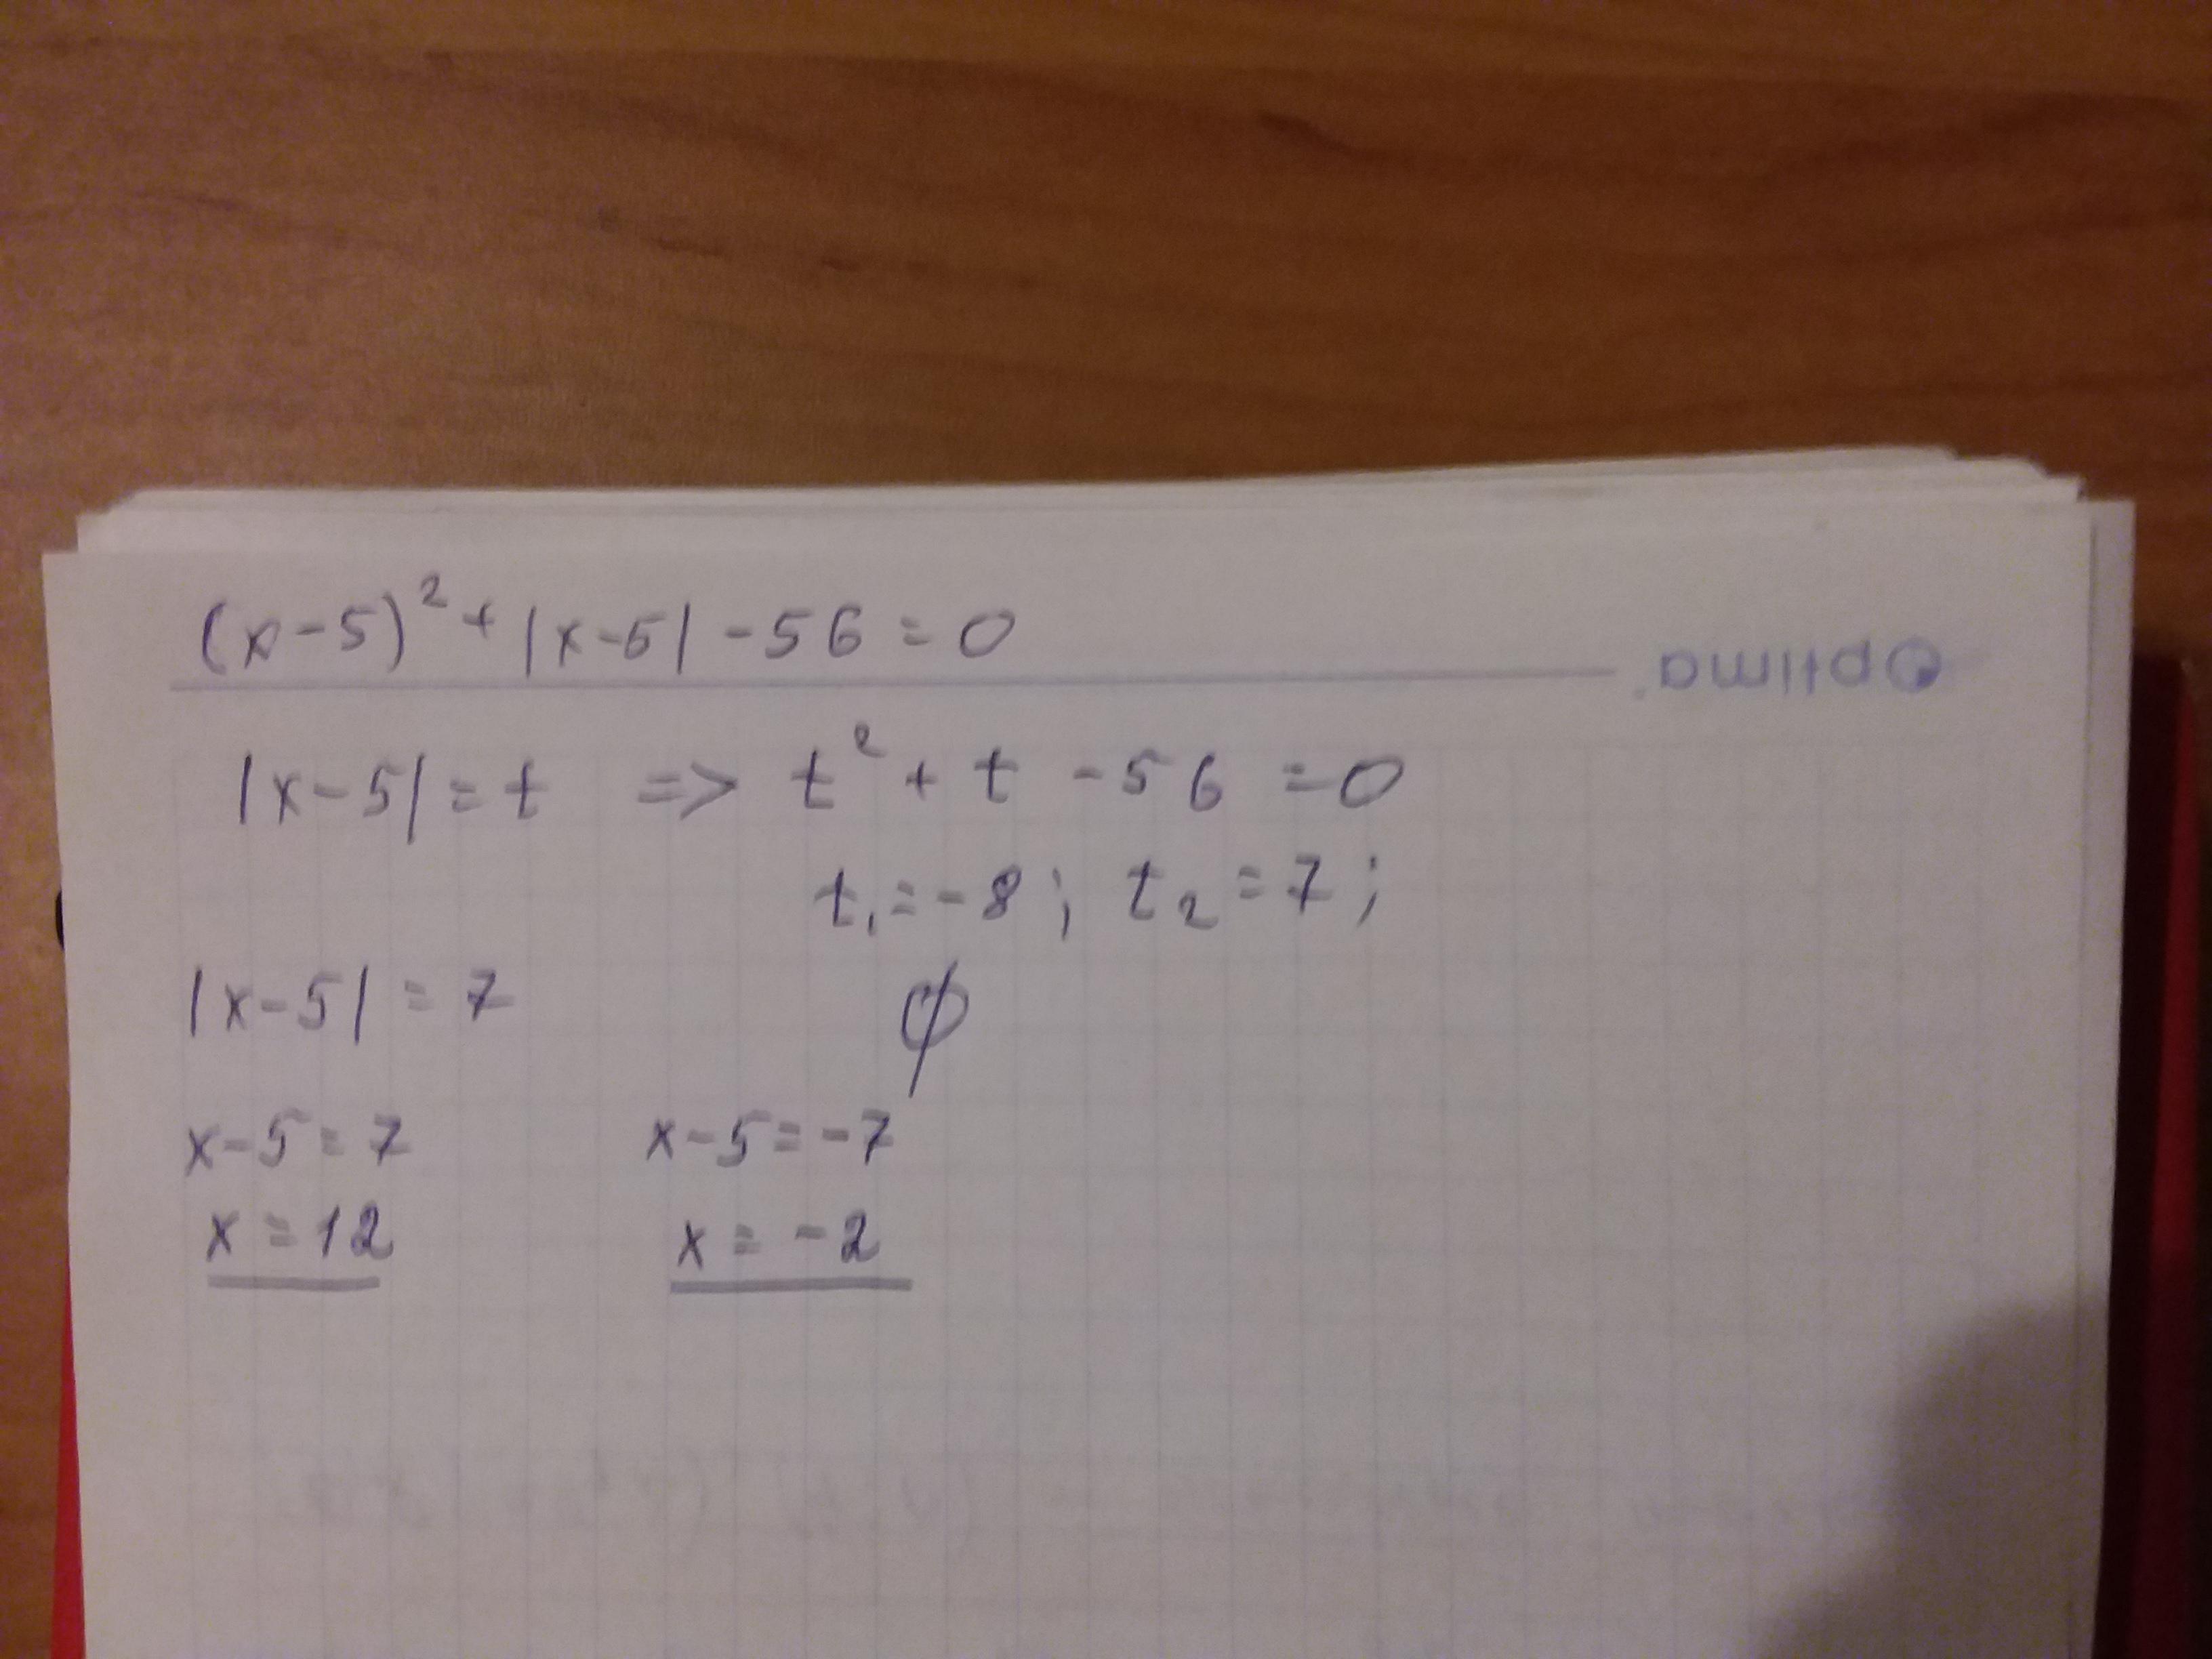 (x-5)² + |x-5| - 56 = 0
Optima
|x-5| = t => t² + t - 56 = 0
t₁ = -8 ; t₂ = 7 ;
|x-5| = 7 ∅
x-5 = 7 x-5 = -7
x = 12 x = -2